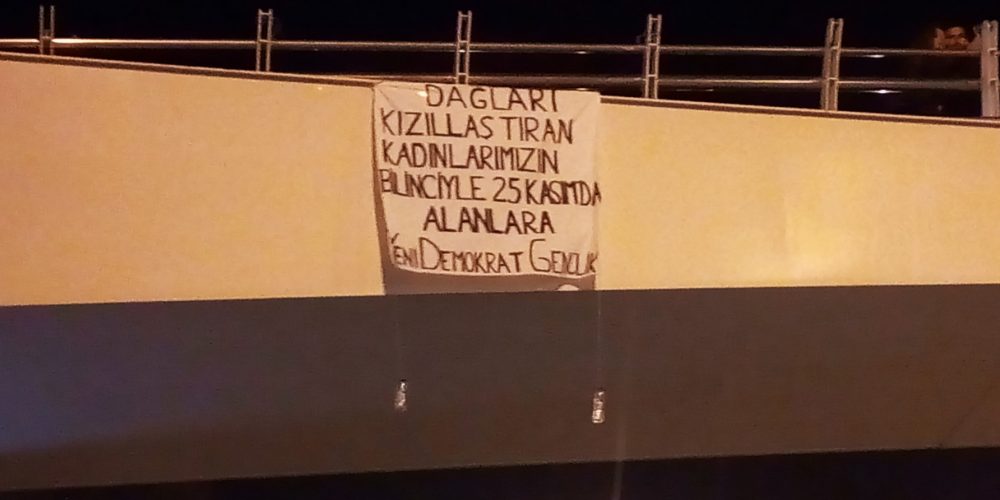 DAĞLARI
KIZILLAŞTIRAN
KADINLARIMIZIN
BİLİNCİYLE 25 KASIMDA
ALANLARA
YENİ DEMOKRAT GENÇLİK